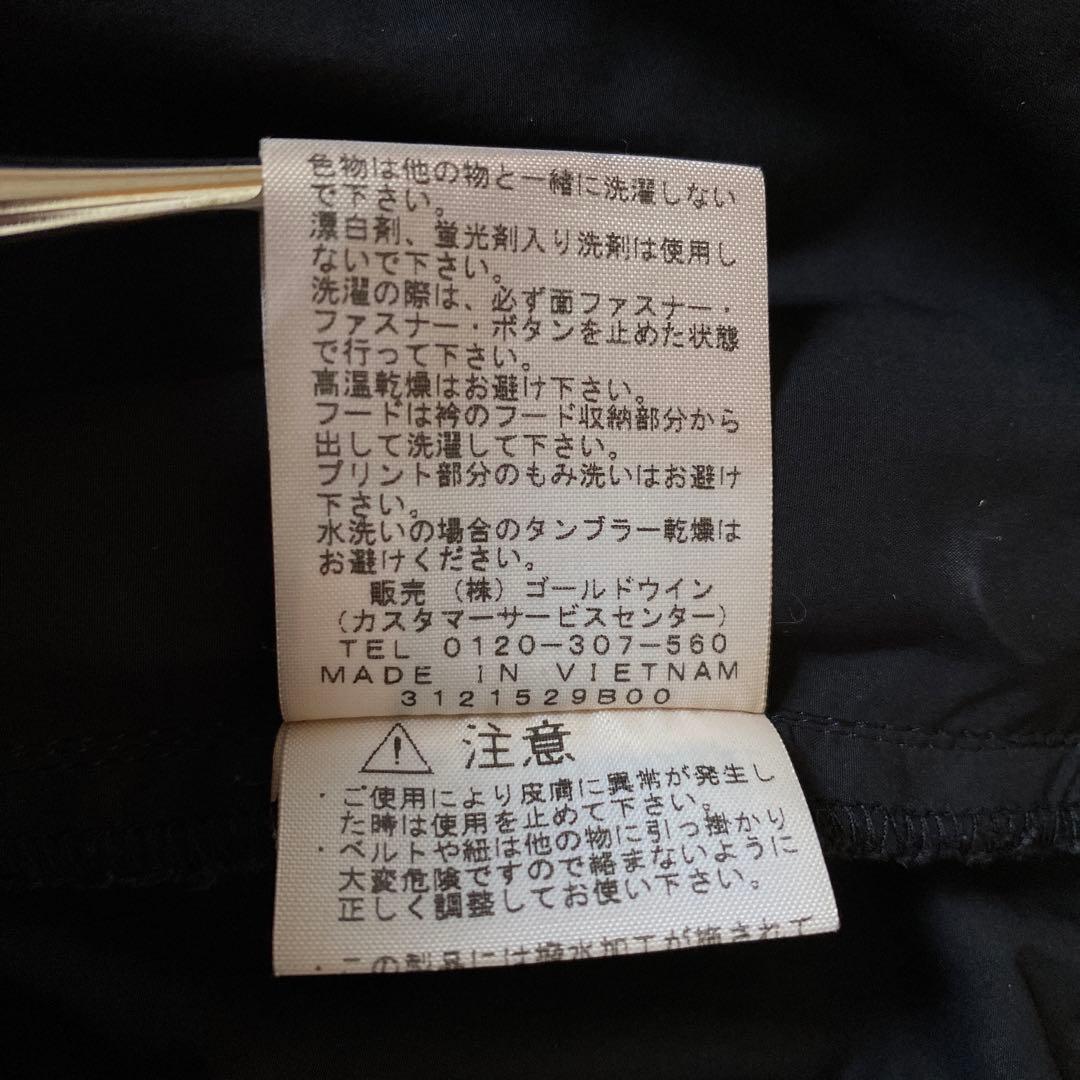 色物は他の物と一緒に洗濯しない
で下さい。
漂白剤、蛍光剤入り洗剤は使用し
ないで下さい。
洗濯の際は、必ず面ファスナー・
ファスナー・ボタンを止めた状態
で行って下さい。
高温乾燥はお避け下さい。
フードは衿のフード収納部分から
出して洗濯して下さい。
プリント部分のもみ洗いはお避け
下さい。
水洗いの場合のタンブラー乾燥は
お避けください。
販売 (株) ゴールドウイン
(カスタマーサービスセンター)
TEL 0120-307-560
MADE IN VIETNAM
3121529B00
注意
・ご使用により皮膚に異常が発生し
た時は使用を止めて下さい。
・ベルトや紐は他の物に引っ掛かり
大変危険ですので絡まないように
正しく調整してお使い下さい。
・この製品には撥水加工が施されて